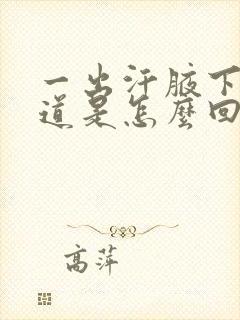 一出汗腋下
道是怎麼回
高萍